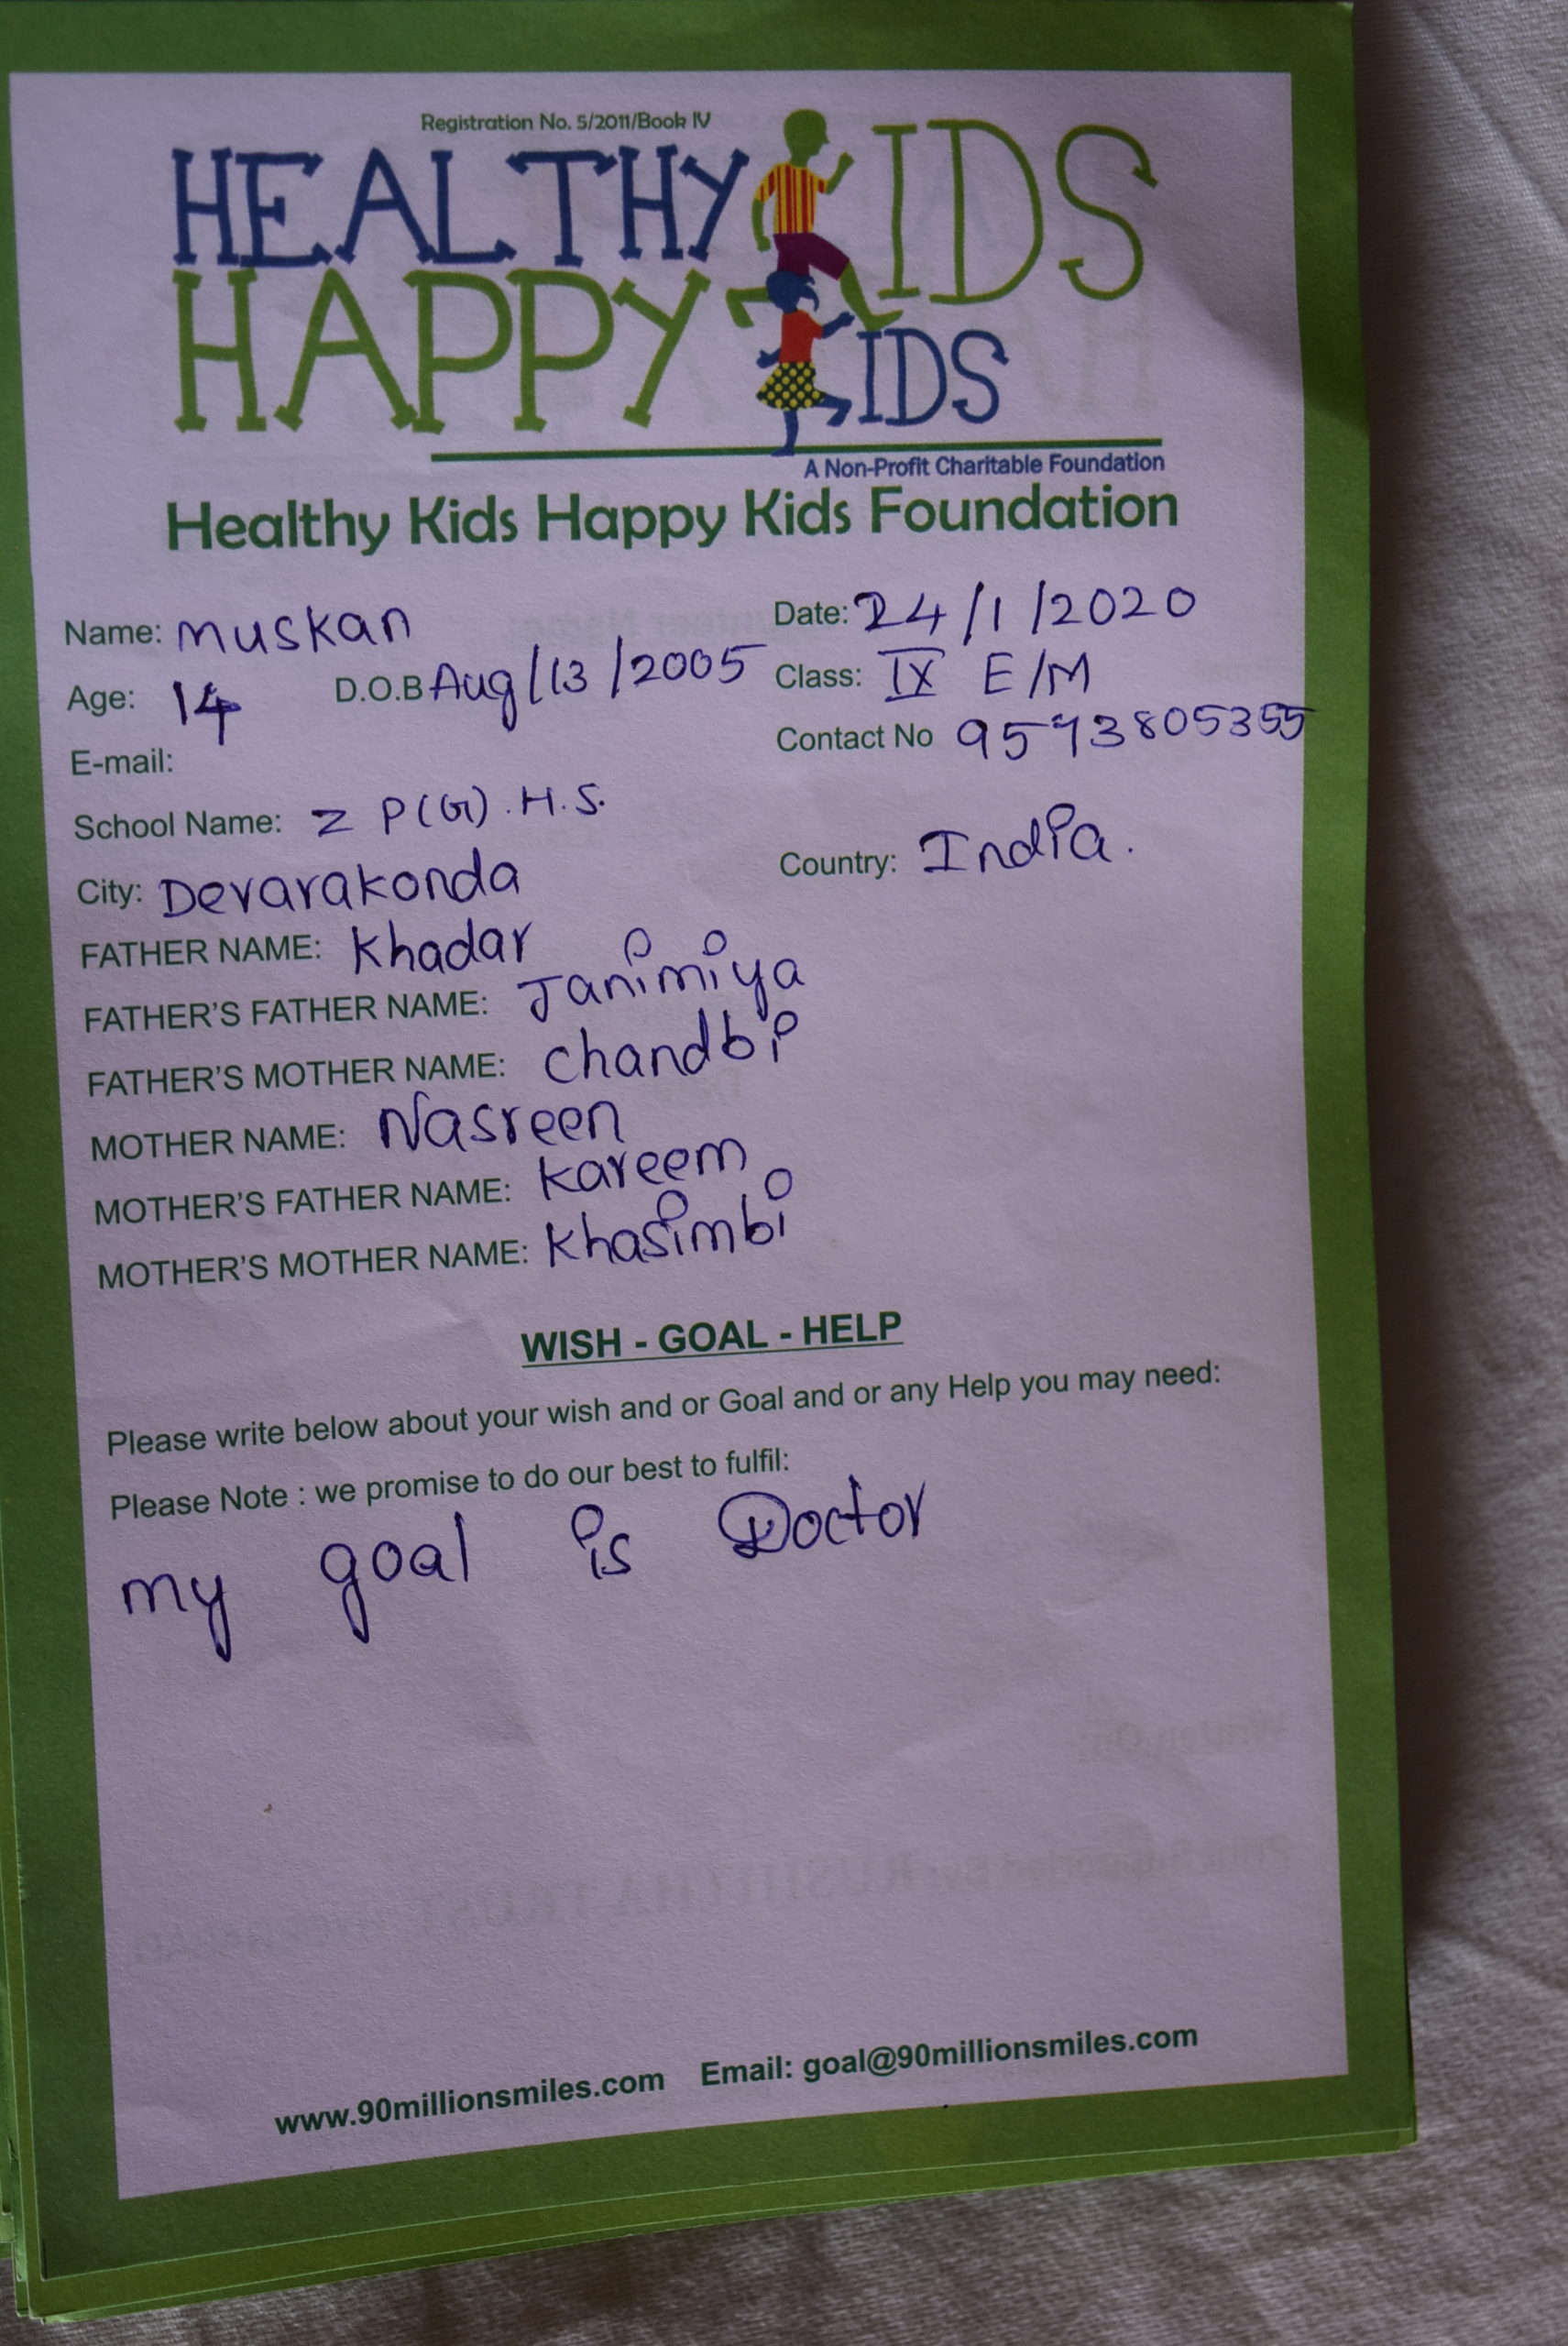 Registration No. 5/2011/Book IV
HEALTHY KIDS
HAPPY KIDS
A Non-Profit Charitable Foundation
Healthy Kids Happy Kids Foundation
Name: Muskan Date: 24/1/2020
Age: 14 D.O.B Aug/13/2005 Class: IX E/M
E-mail: Contact No
School Name: Z P(G).H.S.
City: Devarakonda Country: India.
FATHER NAME: Khadar
FATHER'S FATHER NAME: Janimiya
FATHER'S MOTHER NAME: Chandbi
MOTHER NAME: Nasreen
MOTHER'S FATHER NAME: Kareem
MOTHER'S MOTHER NAME: Khasimbi
WISH - GOAL - HELP
Please write below about your wish and or Goal and or any Help you may need:
Please Note : we promise to do our best to fulfil:
my goal is Doctor
www.90millionsmiles.com Email: goal@90millionsmiles.com